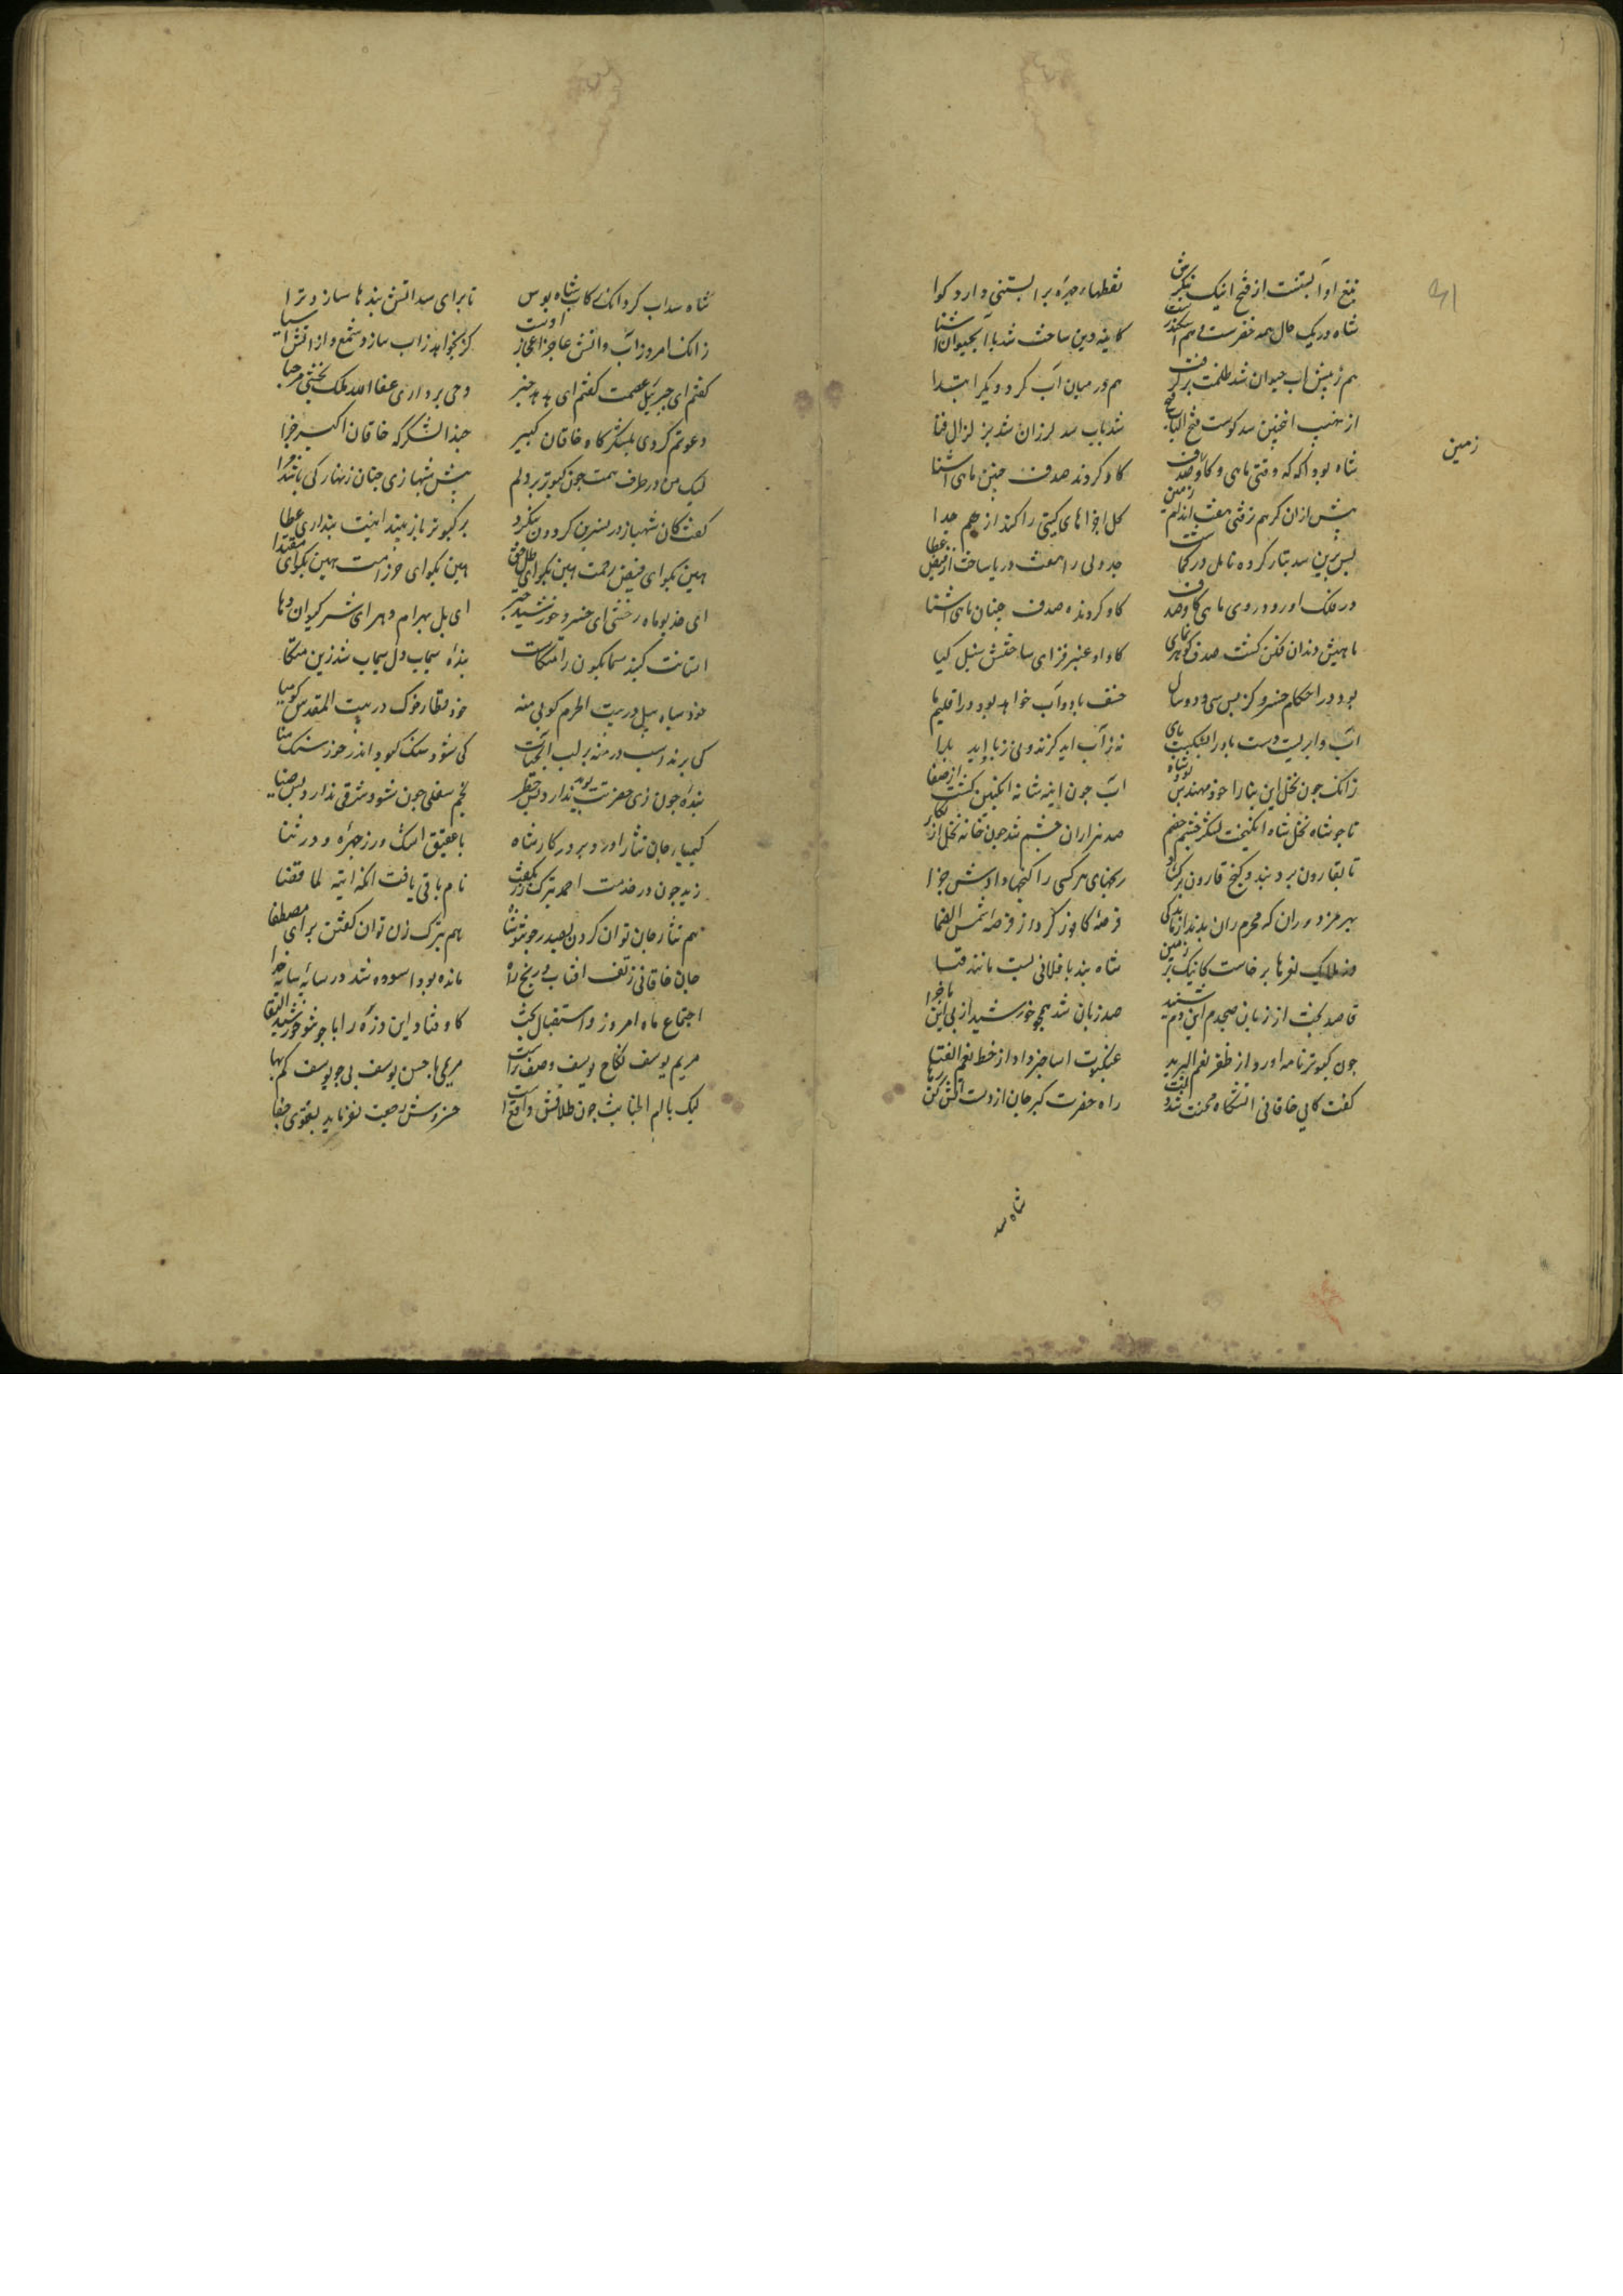 تیغ او آبستنست از فتح اینک بنگرش نقطهاء چهره بر آبستنی دارد گوا
شاه در یک حال هم خضرست هم اسکندرست کاینه دین ساخت شد با آبحیوان آشنا
هم زمینش آب حیوان شد ظلمت برگرفت هم در میان آب کرد دیگر ابتدا
از نهیب سد کوست فتح الباب فتح شد باب سد لرزان شد بز لزال فنا
شاه بود آگه که وقتی ماهی و گاو و صدف گاو گردند صدف چنین ماهی آشنا
پیش ازان کز هم رفتی هفت اندام زمین کل اجزاهای گیتی را کند از هم جدا
بس برین سد بتار کرده تامل در کجاست جدولی را هفت دریا ساخت از فیض عطا
در فلک آورد و روی ماهی گاو و صدف گاو گردنده صدف جنبان ماهی آشنا
ماهیش دندان فکن گشت صدف گوهر نمای گاو او عنبر فزای ساحتش سنبل گیا
بود در احکام خسرو کز پس سی و دو سال خسف باد و آب خواهد بود در اقلیمها
آب را بربست دست باد را بشکست پای نه ز آب آید گزند و نی ز باد آید بلا
زانک چون نحل این بنا را خود مهندس بود شاه آب چون آینه شانه انگبین گشت از صفا
تا چو شاه نحل شاه انگیخت لشکر خشم خصم صد هزاران چشم شد چون خانه نحل از بکا
تا بقارون برد بند و گنج قارون برگشاد رنجهای هر کسی را گنجها دادش جزا
بهر مزدوران که محرم ران بدند از ماندگی قرصه کافور کرد از قرصه شمس الضحا
وز ملایک نعرها برخاست کاینک بر زمین شاه بند بافلانی بست مانند قبا
قاصد بخت از زبان صبحدم این دم شنید صد زبان شد همچو خورشید از پی این ماجرا
چون کبوتر نامه آورد از ظفر نعم البرید عنکبوت آسا خبر داد از خط نعم الفتا
گفت کای خاقانی آتشگاه محنت شد دلت راه حضرت گیر جان از دست آتش کن رها
زمین
شاه سد
شاه سد آب کرد اینک رکاب شاه بوس تا برای سد آتش بندها سازد ترا
زانک امروز آب و آتش عاجز از اعجاز اوست گر بخواهد زاب سازد شمع و از آتش آسیا
گفتم ای جبریل عصمت گفتم ای هدهد خبر وحی پردازی عفا الله ملک بخشی مرحبا
دعوتم کردی بلشکرگاه خاقان کبیر حبذا لشکرگه خاقان اکبر حبذا
لیک من در طرف همت چون کبوتر بر دلم پیش شهبازی چنان زنهار کی باشد مرا
گفت کان شهباز در نسرین گردون ننگرد بر کبوتر باز بیند اینت پنداری عطا
هین بگو ای فیض رحمت هین بگو ای ظل حق هین بگو ای حرز امت هین بگو ای مقتدا
ای خدیو ماه رخش ای خسرو خورشید چتر ای یل بهرام دهره ای شه کیوان دها
آستانت گنبد سیمابگون را متکاست بنده سیماب دل سیماب شد زین متکا
خود سپاه پیل در بیت الحرم گو پی منه خود قطار خوک در بیت المقدس گو میا
کی برند آب درمنه بر لب آب حیات کی شود سنگ کبود اندر خور سنگ منا
بنده چون زی حضرت پوید ندارد بس خطر نجم سفلی چون شود شرقی ندارد بس ضیا
کیمیاء جان نثار آورد بر درگاه شاه با عقیق اشک و زر چهره و در ثنا
زید چون در خدمت احمد بترک زن بگفت نام باقی یافت آنک آیت لما قضا
هم نثار جان توان کردن بصدر چون تو شاه هم بترک زن توان گفتن برای مصطفا
جان خاقانی ز تف آفتاب و رنج راه مانده بود آسوده شد در سایه سایه خدا
اجتماع ماه امروز و استقبال بخت کاوفتاد این ذره را با چون تو خورشید التقا
مریم یوسف نکاح یوسف وصف راست مریمی باحسن یوسف بی چو یوسف کم بها
لیک با ام الخبایث چون طلاقش واقع است خسروش رجعت نفرماید بفتوی جفا